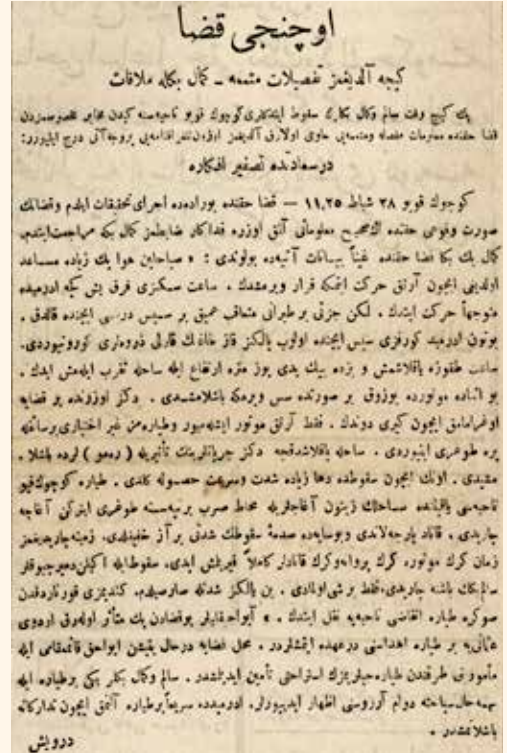 اوچنجی قضا
كیجه آلدیغمز تفصیلات متممه ـ كمال بكله ملاقات
پك كیج وقت سالم وكمال بكلرك سقوط ایتدكلری كوچوك قویو ناحیه سنه كیدن مخابر مخصوصمزدن
قضا حقنده معلومات مفصله ومتممه یی حاوی اولارق آلدیغمز تلغرافنامه یی بروجه آتی درج ایلیورز:
درسعادتده تصفیر افكاره
كوچوك قویو ٢٨ شباط ١١,٢٥ — قضا حقنده بوراده اجرای تحقیقات ایتدم وقضانك
صورت وقوعی حقنده اك صحیح معلوماتی آلمق اوزره فداكار ضابطمز كمال بكه مراجعت ایتدم.
كمال بك بكا قضا حقنده عیناً بیانات آتیه ده بولوندی : « صباحلین هوا پك زیاده مساعد
اولدیغی ایچون آرتق حركت ایتمكه قرار ویرمشدك . ساعت سكزی قرق بش كچه ادرمیده
متوجهاً حركت ایتدك . لكن جزئی بر طیرانی متعاقب عمیق بر سیس دریسی ایچنده قالدق .
بوتون ادرمید كورفزی سیس ایچنده اولوب یالكز قاز طاغنك قارلی ذروه لری كورونیوردی.
ساعت طقوزه یاقلاشمش و بزده بیك یدی یوز متره ارتفاع ایله ساحله تقرب ایله مش ایدك .
بو اثناده موتورده بوزوق بر صورتده سس ویرمكه باشلامشدی . دكز اوزرنده بر قضایه
اوغرامامق ایچون كیری دوندك . فقط آرتق موتور ایشله میور وطیاره مز غیر اختیاری بر سائقه
یره طوغری اینیوردی . ساحله یاقلاشدقجه دكز جریانلرینك تأثیریله ( رەمو ) لرده باشلا ـ
مشیدی . اونك ایچون سقوطده دها زیاده شدت وسرعت حصوله كلدی . طیاره كوچوك قیو
ناحیه سی یاقیننده ساحلك زیتون آغاجلریله محاط صرب بر تپه سنه طوغری ایتركن آغاجه
چارپدی . قاناد پارچه لاندی وبوسایه ده صدمۀ سقوطك شدتی بر آز خفیفلدی. زمینه چارپدیغمز
زمان كرك موتوره كرك پروانه وكرك قانادلر كاملاً قیرلمش ایدی. سقوط ایله اكیلن دمیر چبوقلر
سالم بكك باشنه چارپدی، فقط بر شی اولمادی . بن یالكز شدتله صارصیلدم. كندیمزی قورتاردقدن
صوكره طیاره انقاضی ناحیه یه نقل ایتدك . » آیواجقلیلر بوقضادن پك متأثر اوله رق اردوی
عثمانی یه بر طیاره اهداسنی درعهده ایتمشلردر . محل قضایه درحال یتیشن ایواجق قائممقامی ایله
مأمورین طرفندن طیاره جیلریمزك استراحتی تأمین ایدیلمشدر . سالم وكمال بكلر یكی بر طیاره ایله
بهمه حال سیاحته دوام آرزوسنی اظهار ایدییورلر. ادرمیدده سریعاً بر طیاره آلمق ایچون تداركاته
باشلانمشدر .
درویش